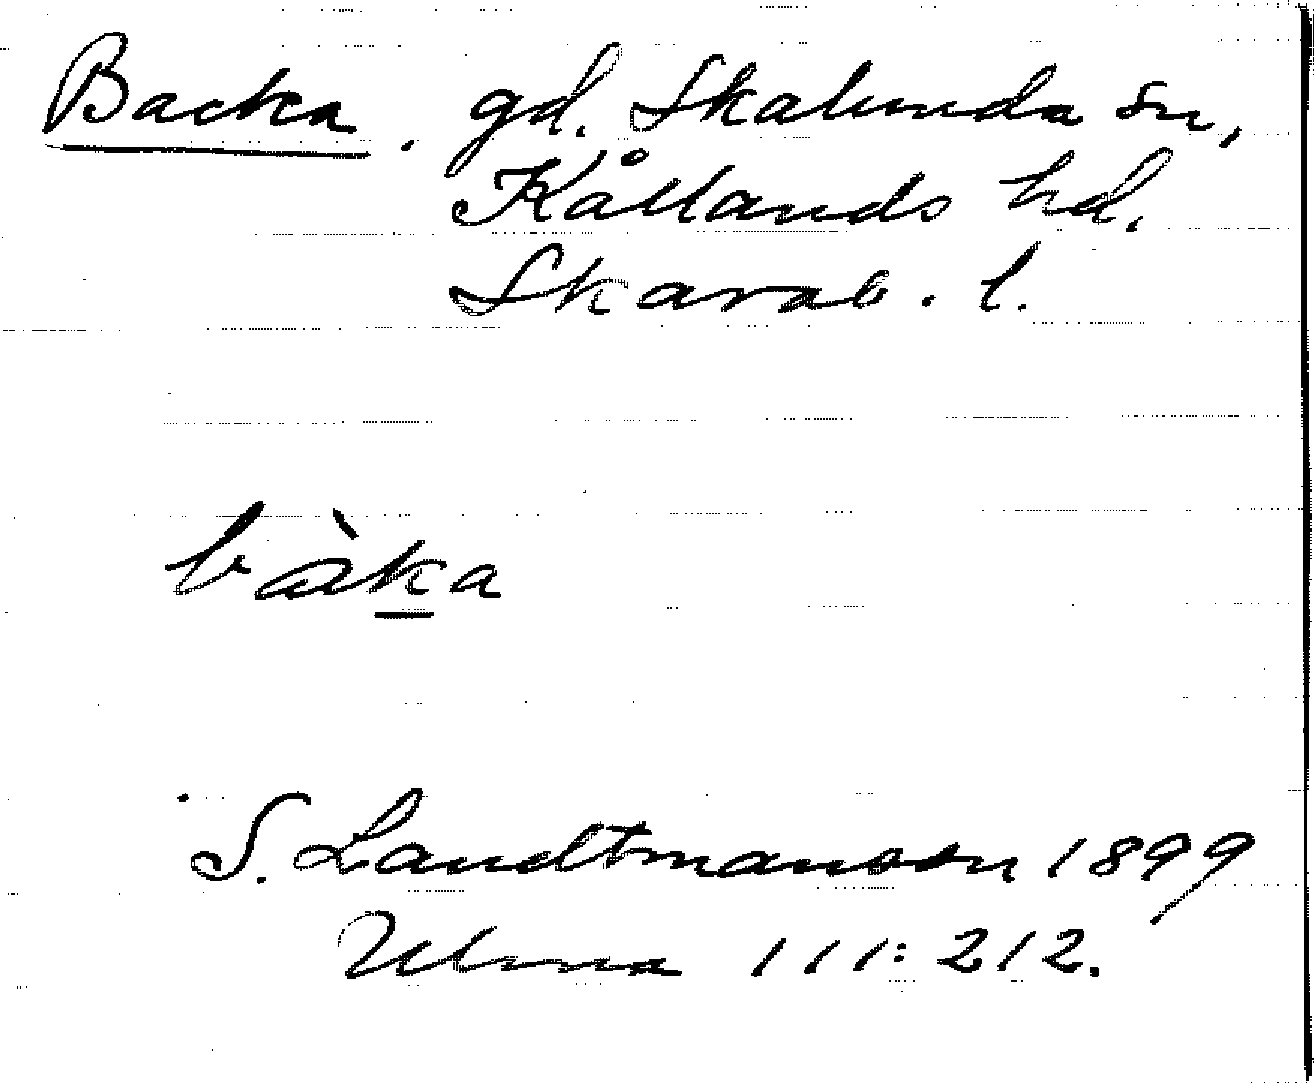 Backa, gd. Skalunda sn,
Kållands hd.
Skarab. l.
bàka
S. Landtmanson 1899
Ulma 111:212.